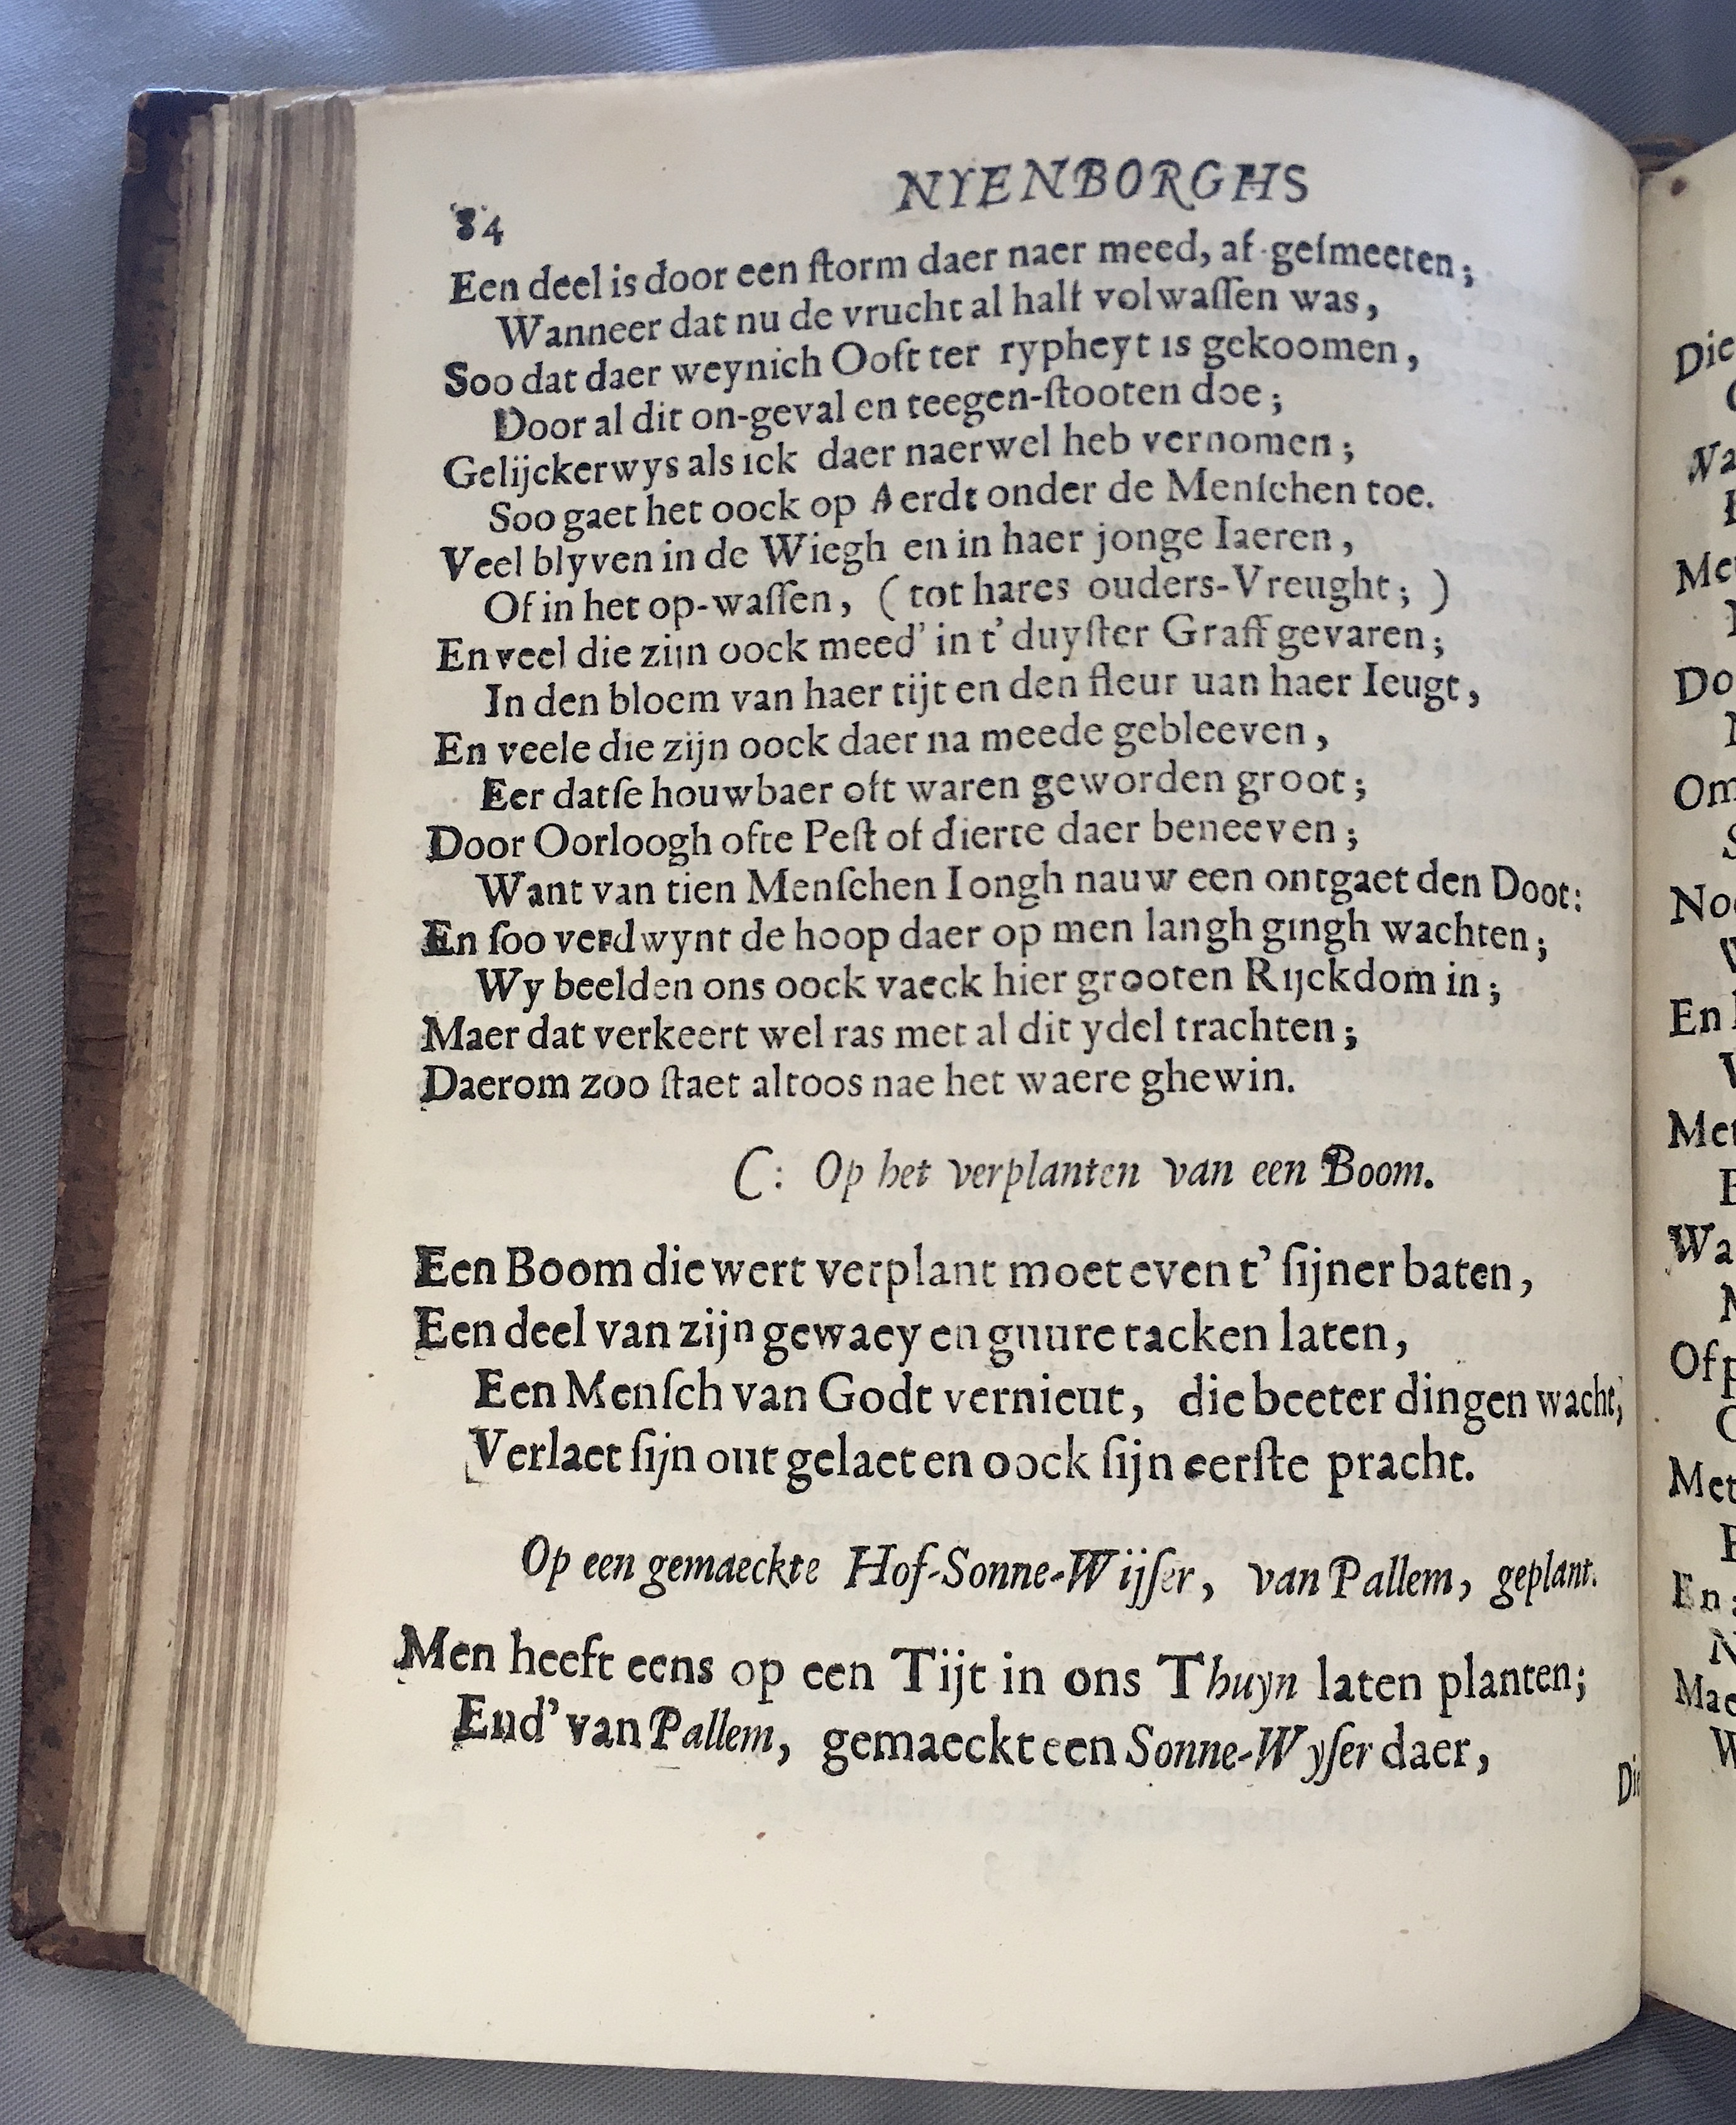 84 NYENBORGHS
Een deel is door een ſtorm daer naer meed, af-geſmeeten;
Wanneer dat nu de vrucht al half volwaſſen was,
Soo dat daer weynich Ooft ter rypheyt is gekoomen,
Door al dit on-geval en teegen-ſtooten doe;
Gelijckerwys als ick daer naerwel heb vernomen;
Soo gaet het oock op Aerdt onder de Menſchen toe.
Veel blyven in de Wiegh en in haer jonge Iaeren,
Of in het op-waſſen, (tot hares ouders-Vreught;)
En veel die zijn oock meed' in t' duyſter Graff gevaren;
In den bloem van haer tijt en den fleur uan haer Ieugt,
En veele die zijn oock daer na meede gebleeven,
Eer datſe houwbaer oft waren geworden groot;
Door Oorloogh ofte Peſt of dierte daer beneeven;
Want van tien Menſchen Iongh nauw een ontgaet den Doot:
En ſoo verdwynt de hoop daer op men langh gingh wachten;
Wy beelden ons oock vaeck hier grooten Rijckdom in;
Maer dat verkeert wel ras met al dit ydel trachten;
Daerom zoo ſtaet altoos nae het waere ghewin.
C: Op het verplanten van een Boom.
Een Boom die wert verplant moet even t' ſijner baten,
Een deel van zijn gewaey en guure tacken laten,
Een Menſch van Godt vernieut, die beeter dingen wacht,
Verlaet ſijn out gelaet en oock ſijn eerſte pracht.
Op een gemaeckte Hof-Sonne-Wijſer, van Pallem, geplant.
Men heeft eens op een Tijt in ons Thuyn laten planten;
End' van Pallem, gemaeckt een Sonne-Wyſer daer,
Die
Die
Met
Do
Om
Noc
En
Met
Wa
Of
Met
En
Mae